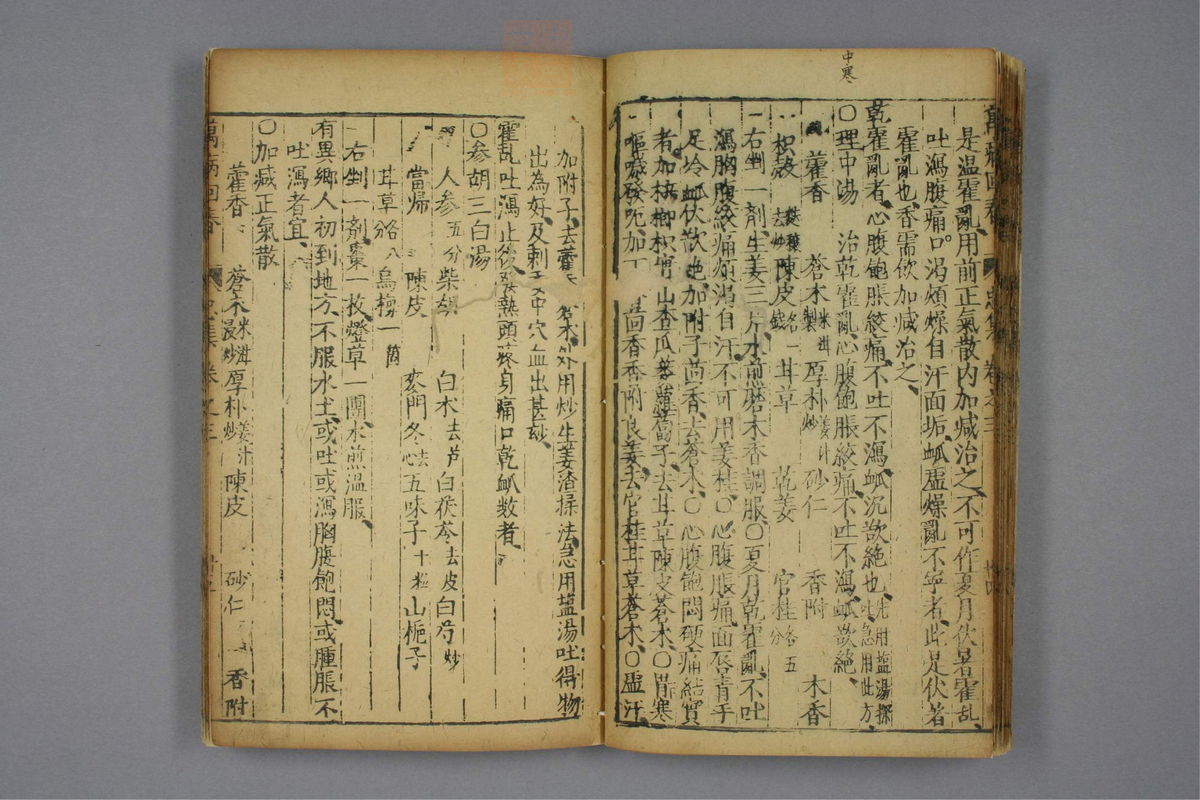 中寒
是温霍亂用前正氣散内加減治之不可作夏月伏暑霍乱
吐瀉腹痛口渴煩燥自汗面垢脉虚燥亂不寧者此是伏暑
霍亂也香需飲加減治之
乾霍亂者心腹飽脹絞痛不吐不瀉脉沉欲絶也先用塩湯探吐急用此方
○理中湯 治乾霍亂心腹飽脹絞痛不吐不瀉脉欲絶
藿香 蒼术米泔製 厚朴姜汁炒 砂仁 香附 木香
枳殼麩炒去穰 陳皮各一錢 甘草 乾姜 官桂各五分
右剉一剤生姜三片水煎磨木香調服○夏月乾霍亂不吐
瀉胸腹絞痛煩渴自汗不可用姜桂○心腹脹痛面唇青手
足冷脉伏欲絶加附子茴香去蒼术○心腹飽悶硬痛結實
者加檳榔枳實山查瓜蔞蘿蔔子去甘草陳皮蒼术○胃寒
嘔噦發呃加丁 茴香香附良姜去官桂甘草蒼术○虚汗
加附子去藿 蒼术外用炒生姜渣揉法急用塩湯吐得物
出為好及刺 穴血出甚妙
霍乱吐瀉止後發熱頭疼身痛口乾脉数者
○参胡三白湯
人参五分 柴胡 白术去芦 白茯苓去皮 白芍炒
當歸 陳皮 麥門冬去心 五味子十粒 山梔子
甘草各八分 烏梅一箇
右剉一剤棗一枚燈草一團水煎溫服
有異鄉人初到地方不服水土或吐或瀉胸腹飽悶或腫脹不
吐瀉者宜
○加減正氣散
藿香 蒼术米泔浸炒 厚朴姜汁炒 陳皮 砂仁 香附
萬病回春 忠集 卷之三